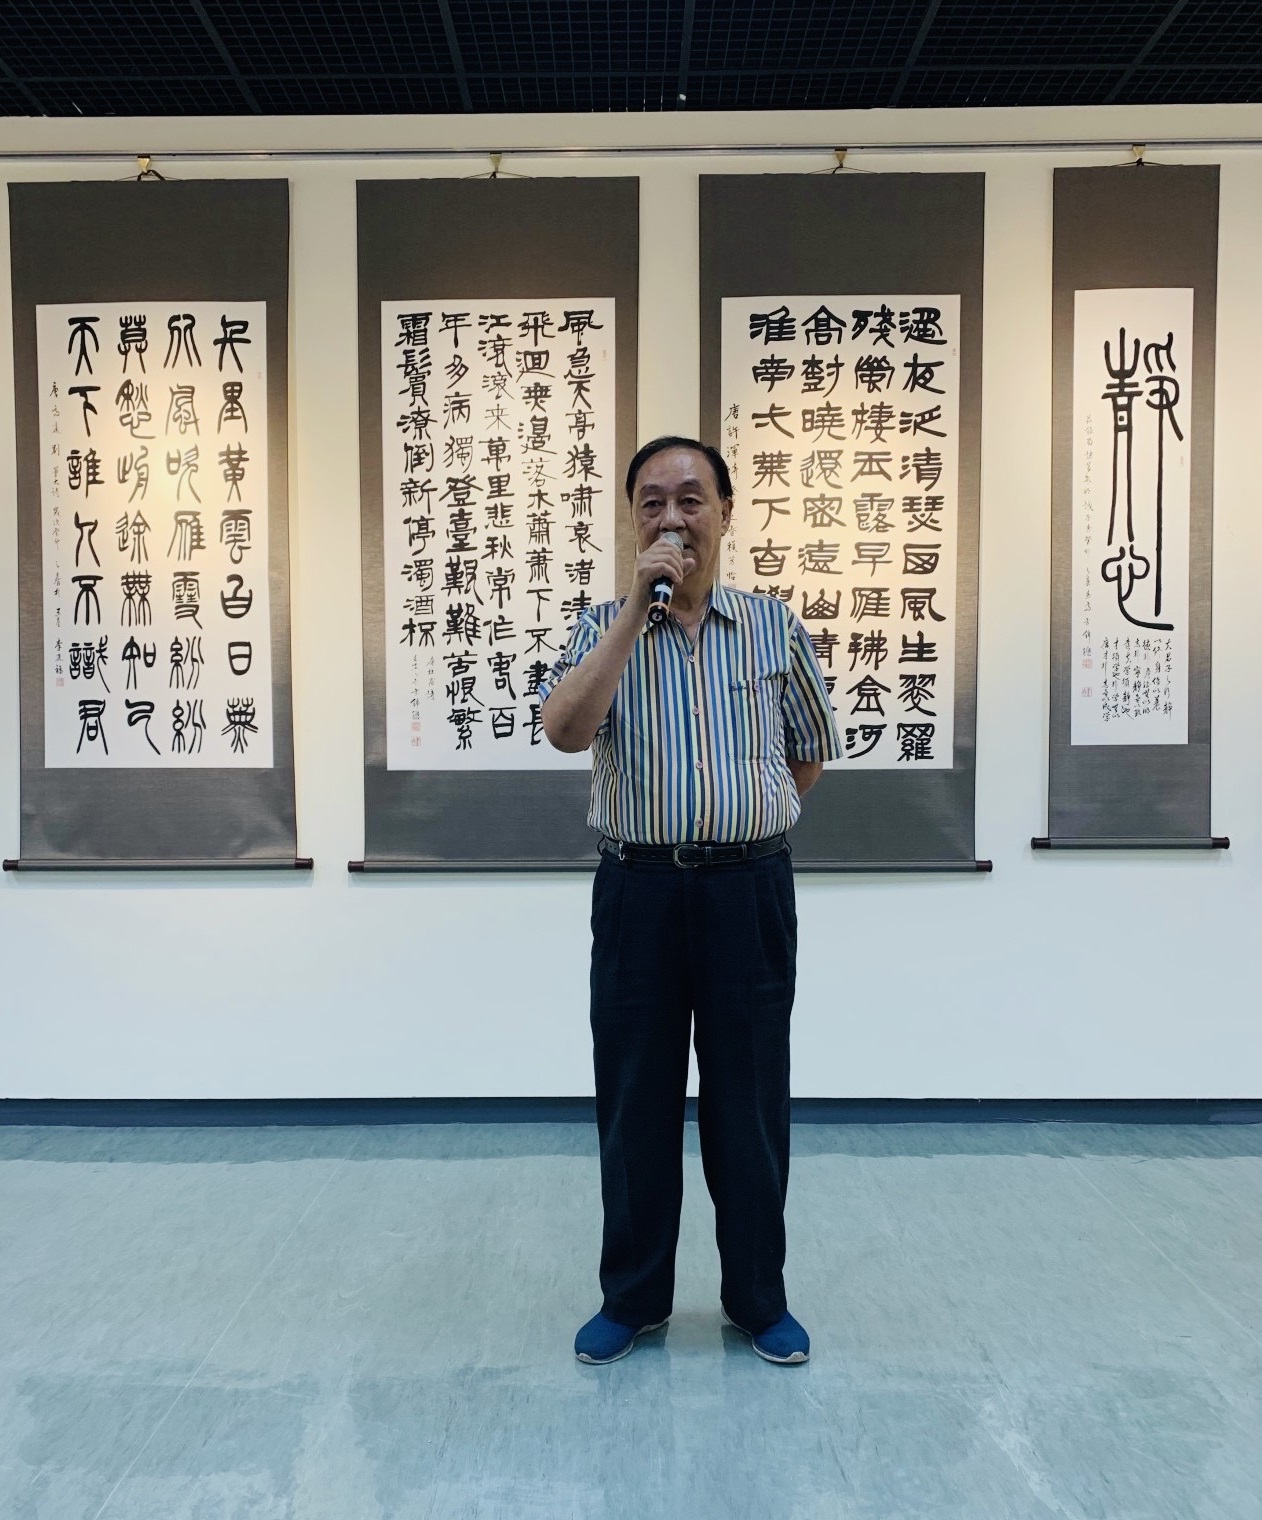 千里黃雲白日曛
北風吹雁雪紛紛
莫愁前途無知己
天下誰人不識君
唐高適別董大詩
風急天高猿嘯哀渚清
飛迴無邊落木蕭蕭下不盡長
江滾滾来萬里悲秋常作客百
年多病獨登臺艱難苦恨繁
霜鬢潦倒新停濁酒杯
遲夜泛清瑟西風生翠蘿
殘螢棲玉露早雁拂金河
高樹曉還密遠山晴
淮南弌葉下自
唐許渾
靜心
夫君子之行靜
以修身儉以養